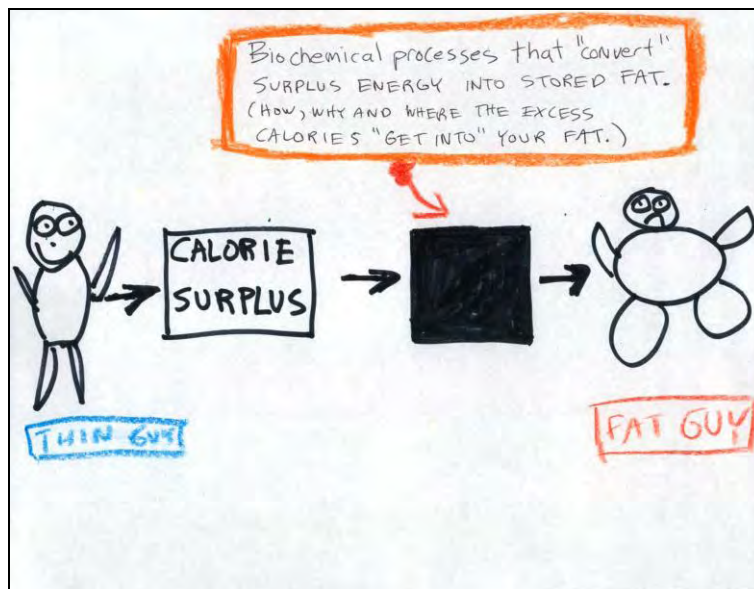 Biochemical processes that "convert"
SURPLUS ENERGY INTO STORED FAT.
(HOW, WHY AND WHERE THE EXCESS
CALORIES "GET INTO" YOUR FAT.)
CALORIE
SURPLUS
THIN GUY
FAT GUY